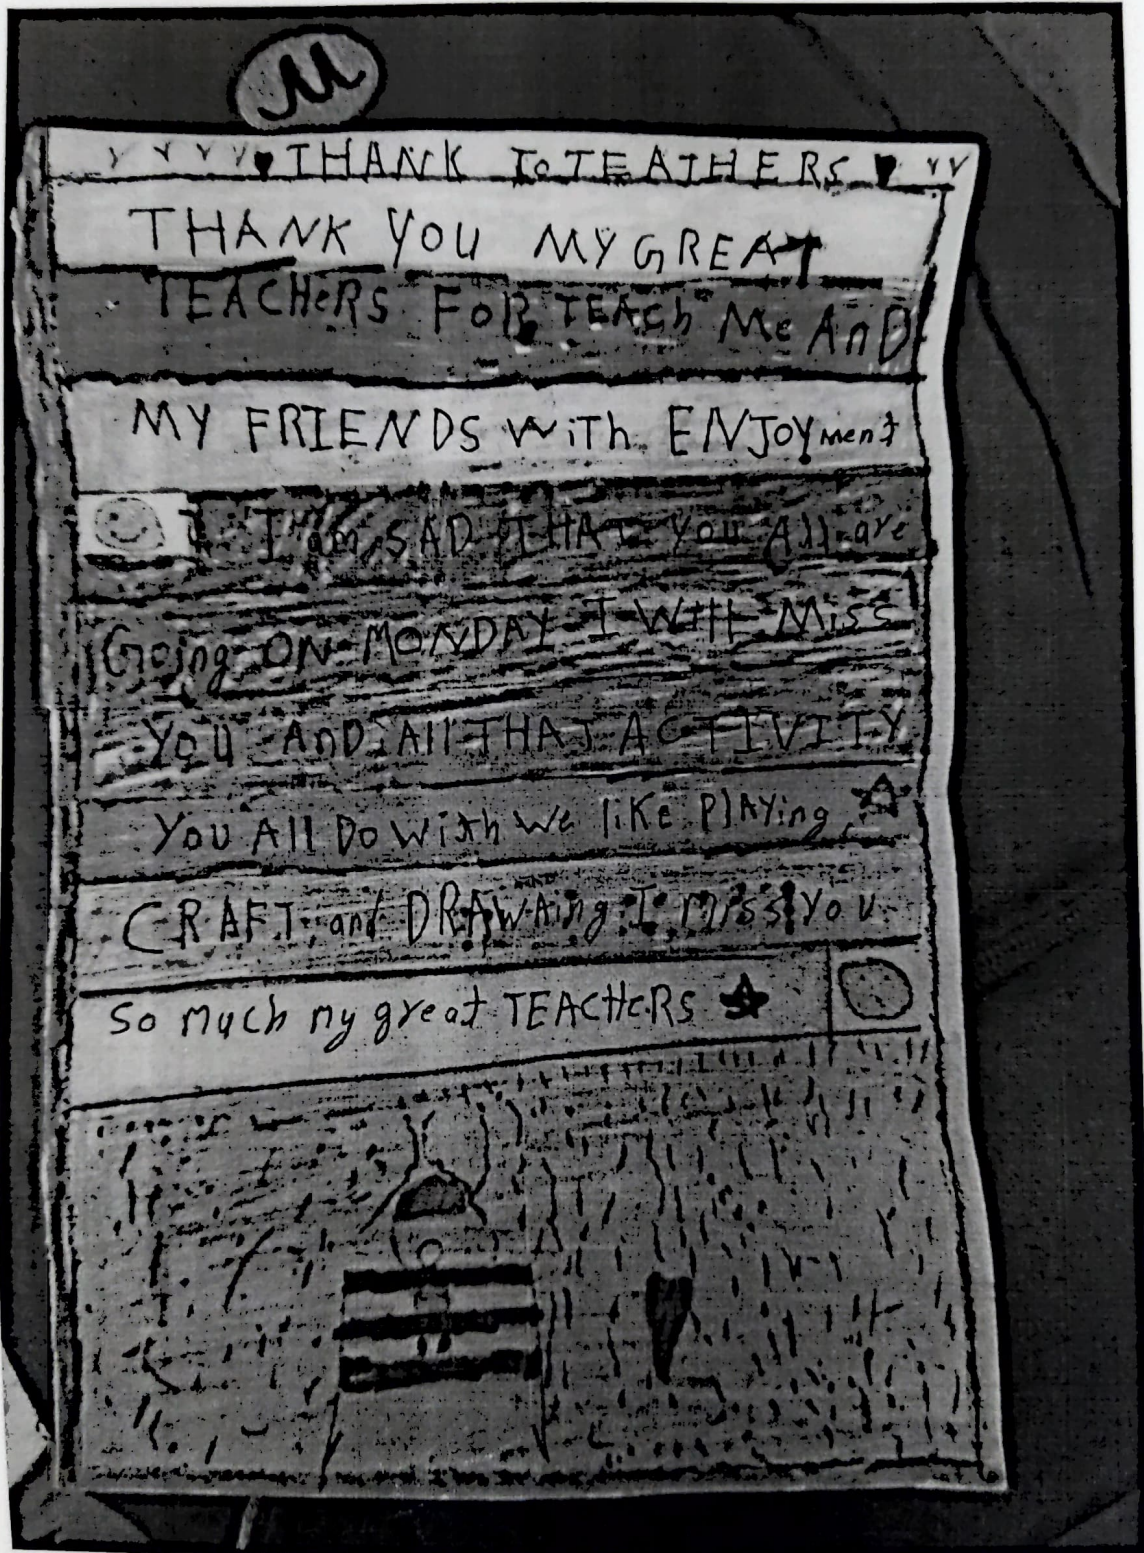 M
THANK To TEATHERS
THANK YOU MY GREAT
TEACHeRS FOR TEACh Me AnD
MY FRIENDS WiTh ENJOYment
I am SAD THAT you All are
Going ON MONDAY I Will Miss
YOU AnD All THAT ACTIVITY
You All Do With We like PlAYing
CRAFT and DRAWAing I miss You
So much my great TEACHeRS